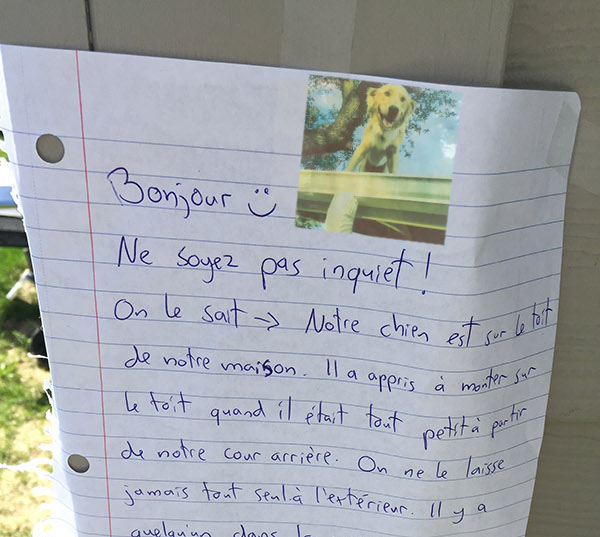 Bonjour
Ne soyez pas inquiet!
On le sait → Notre chien est sur le toit
de notre maison. Il a appris à monter sur
le toit quand il était tout petit à partir
de notre cour arrière. On ne le laisse
jamais tout seul à l'extérieur. Il y a
quelqu'un dans la